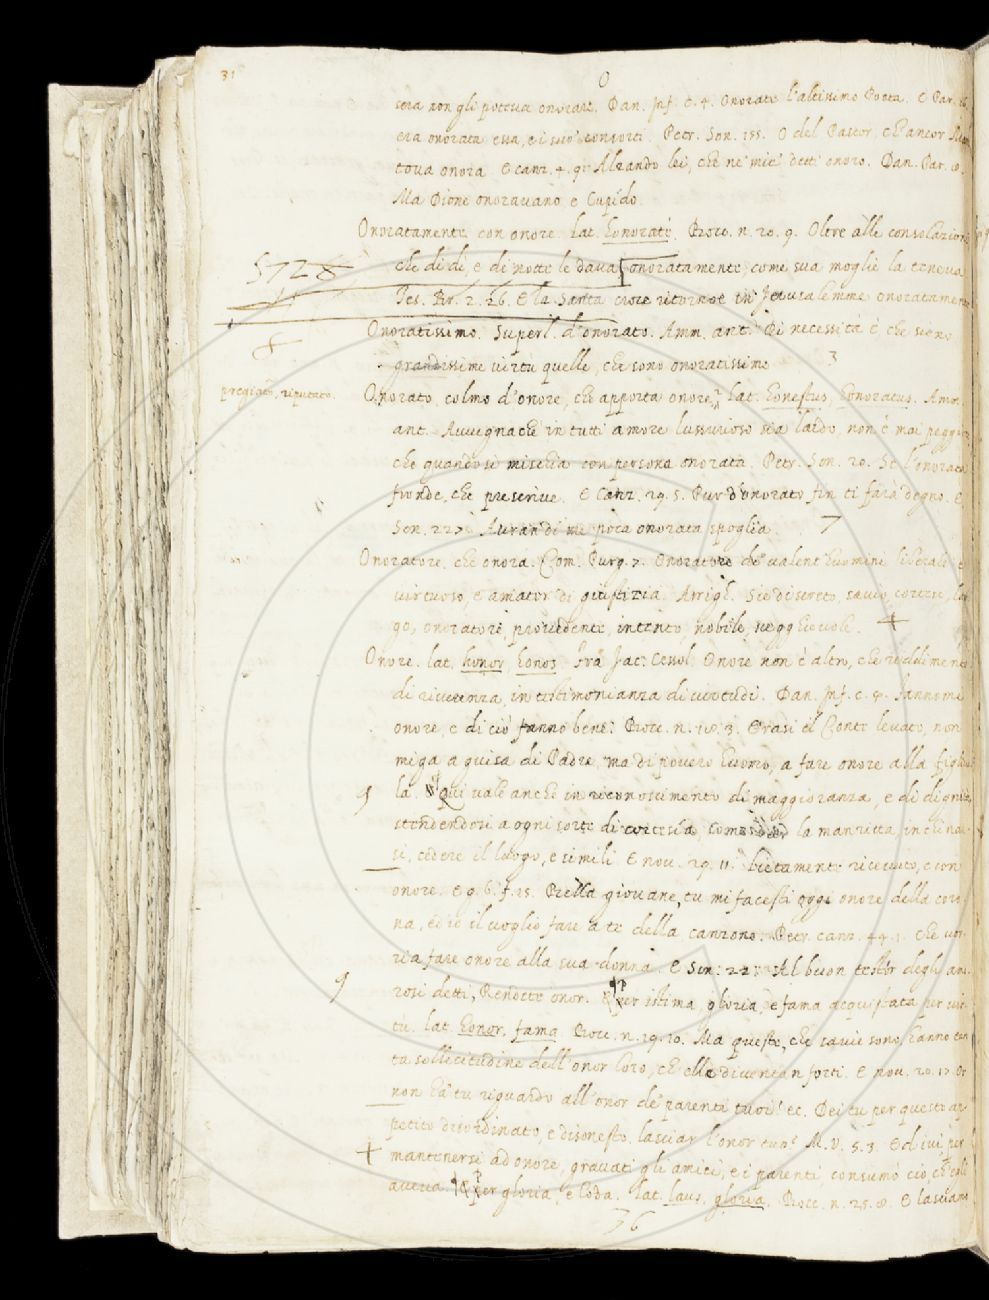 31
O
sera non gli poteva onorare. Dan. Inf. c. 4. Onorate l'altissimo Poeta. E Par. 16.
era onorata essa, e i suoi consorti. Petr. Son. 155. O del Pastor, ch'ancor
tova onora. E canz. 4. 9. Alzando lei, che ne' miei detti onoro. Dan. Par. 8.
Ma Dione onoravano, e Cupido.
Onoratamente. con onore. lat. honoratè. Bocc. n. 20. 9. Oltre alle consolazioni
che di dì, e di notte le dava, onoratamente, come sua moglie la teneva
5728
Tes. Br. 2. 26. E la Santa croce ritornoe in Jerusalemme onoratamente
Onoratissimo. Superl. d'onorato. Amm. ant. Di necessità è che sieno
grandissime virtù quelle, che sono onoratissime. 3
pregiato, riputato.
Onorato, colmo d'onore, che apporta onore, lat. honestus, honoratus. Amm.
ant. Avvegnachè in tutti amore lussurioso sia laido, non è mai peggio,
che quando si mischia con persona onorata. Petr. Son. 20. Se l'onorata
fronde, che prescrive. E Canz. 29. 5. Pur d'onorato fin ti farà degno. E
Son. 227. Avran di me poca onorata spoglia. 7
Onoratore. che onora. Com. Purg. 7. Onoratore de' valent'huomini liberali e
virtuoso, e amator di giustizia. Arrigh. Sie discreto, savio, cortese, lar
go, onoratore, provedente, intento, nobile, +
Onore. lat. honor, honos. Fra Jac: Cessol. Onore non è altro, che reddimento
di riverenza, in testimonianza di virtudi. Dan. Inf. c. 4. Fannomi
onore, e di ciò fanno bene. Bocc. n. 18. 3. Erasi il Conte levato, non
miga a guisa di Padre, ma di povero huomo, a fare onore alla figliuo
la. Qui vale anche in riconoscimento di maggioranza, e di dignità,
stendendosi a ogni sorte di cortesia, come la manritta, inchinar
si, cedere il luogo, e simili. E nov. 29. 11. lietamente ricevuto, e con
onore. E g. 6. f. 15. Bella giovane, tu mi facesti oggi onore della coro
na, ed io il voglio fare a te della canzone. Petr. canz. 44. 1. che vor
ria fare onore alla sua donna. E Son: 22: Al buon testor degli amo
rosi detti, Rendete onor. Per istima, gloria, e fama acquistata per vir
tù. lat. honor, fama. Bocc. n. 19. 10. Ma queste, che savie sono, hanno tan
ta sollecitudine dell'onor loro, ch'elle diventan forti. E nov. 20. 17. Or
non hai tu riguardo all'onor de' parenti tuoi? ec. Dei tu per questo ap
petito disordinato, e disonesto, lasciar l'onor tuo? M. V. 5. 3. Ed ivi, per
mantenersi ad onore, gravati gli amici, e i parenti consumò ciò, ch'egli
aveva. Per gloria, e loda. lat. laus, gloria. Bocc. n. 25. 8. E lasciamo
76